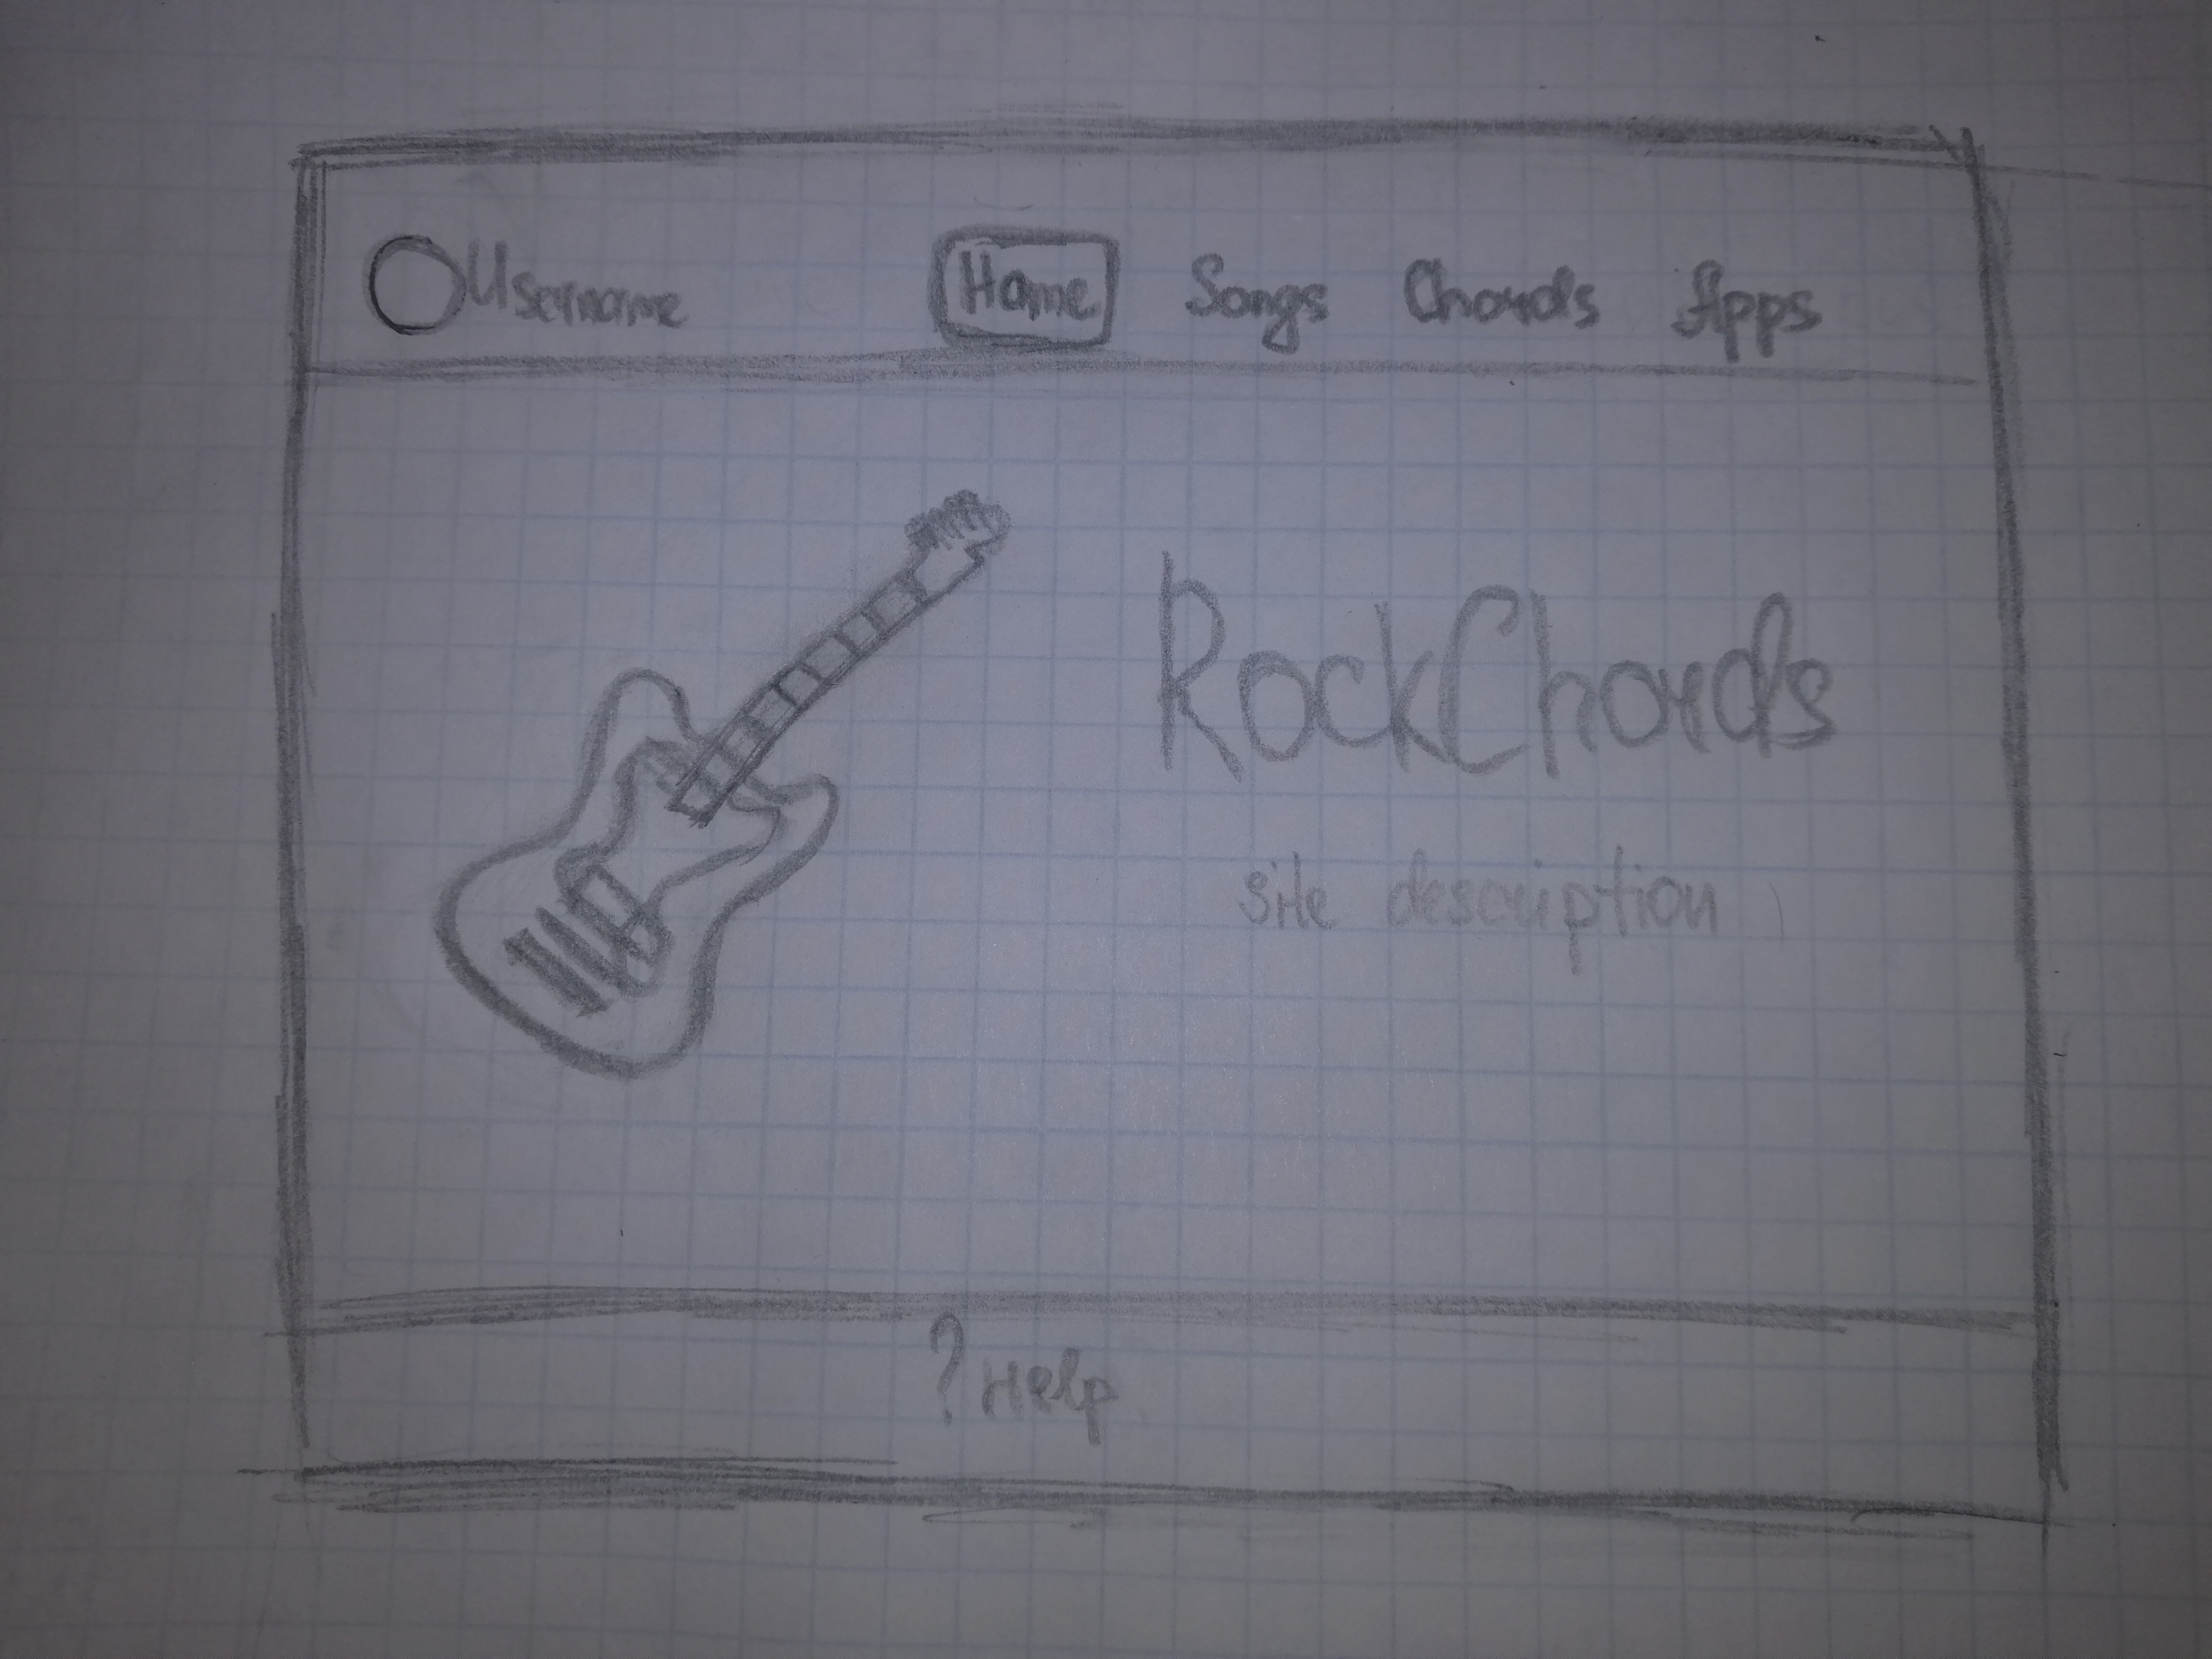 Username Home Songs Chords Apps
RockChords
site description
? Help